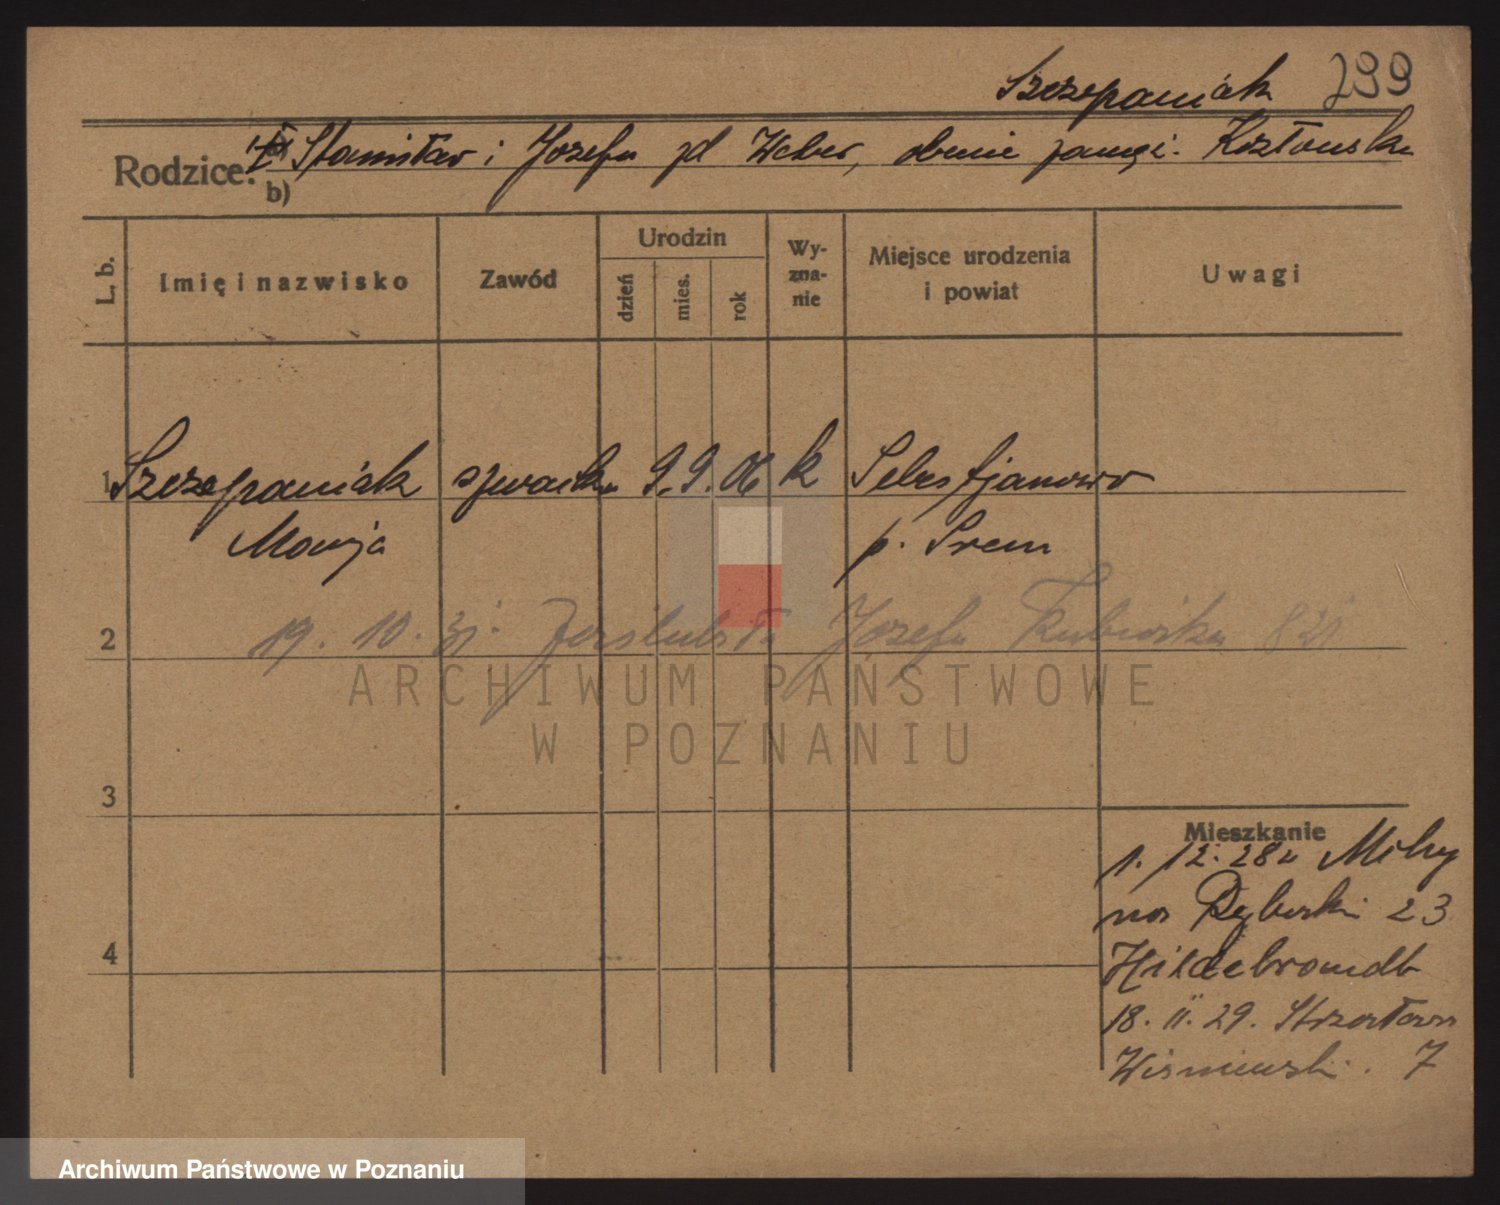 Szczepaniak 299
Rodzice: Stanisław i Józefa zd Weber, obecnie zamęż. Kozłowska
b)
L. b.
Imię i nazwisko
Zawód
Urodzin
dzień
mies.
rok
Wy-
zna-
nie
Miejsce urodzenia
i powiat
Uwagi
1 Szczepaniak szwaczka 9. 9. 06 k Sebastjanowo
Marja p. Śrem
19. 10. 31. zaślubiła Józefa Kubiaka 821
2
3
4
Mieszkanie
1. 12. 28 u
23
Hildebrandt
18. II. 29. Strzałowa
Wiśniewski. 7
ARCHIWUM PAŃSTWOWE
W POZNANIU
Archiwum Państwowe w Poznaniu